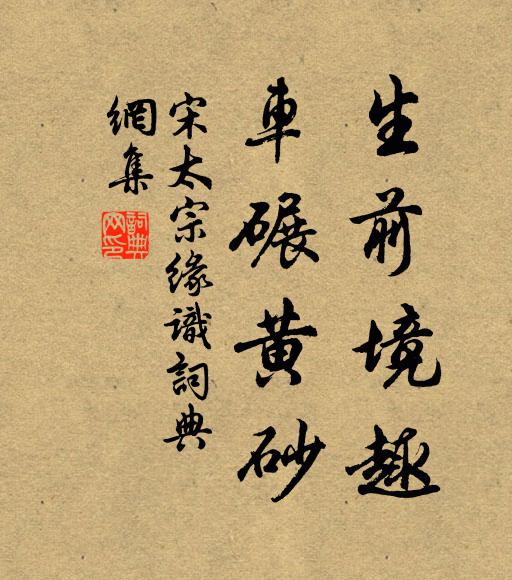 生前境趣
車碾黃砂
宋太宗緣識詞典
網集
詞典
网印